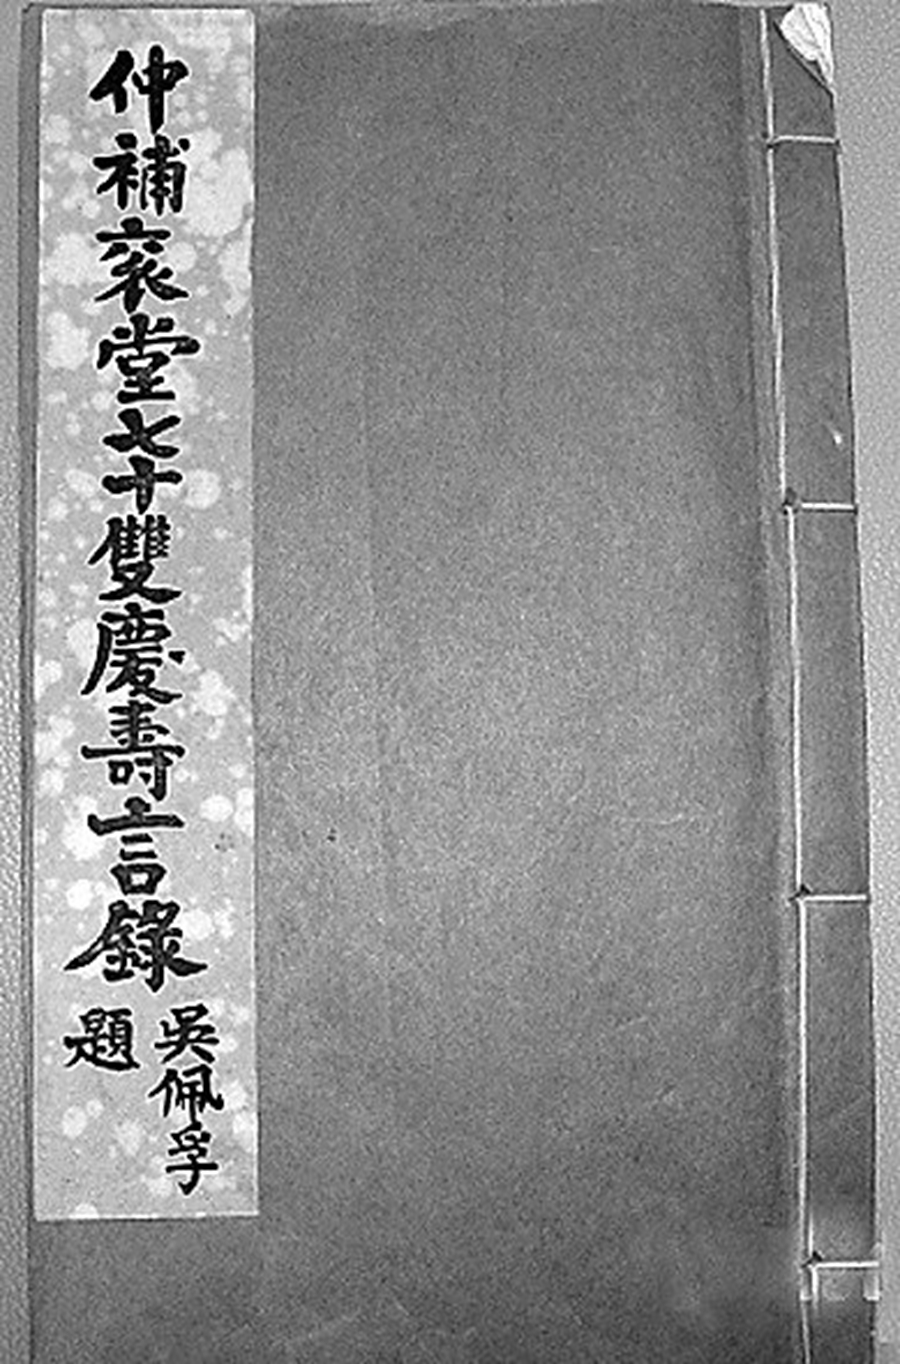 仲補衮堂七十雙慶壽言錄
吳佩孚
題